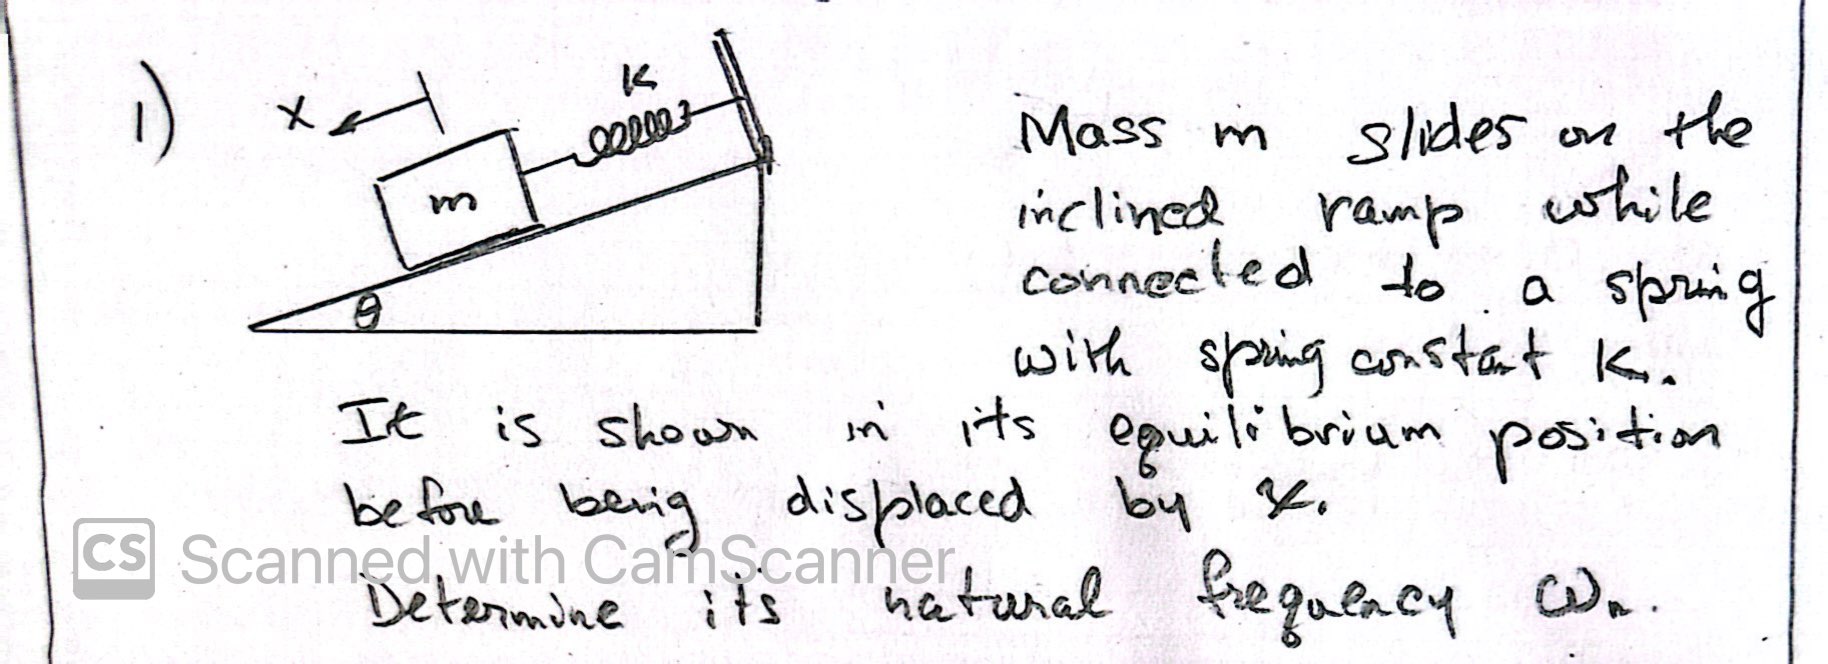 1)
X
K
m
θ
Mass m slides on the
inclined ramp while
connected to a spring
with spring constant K.
It is shown in its equilibrium position
before being displaced by x.
CS Scanned with CamScanner
Determine its natural frequency ωn.